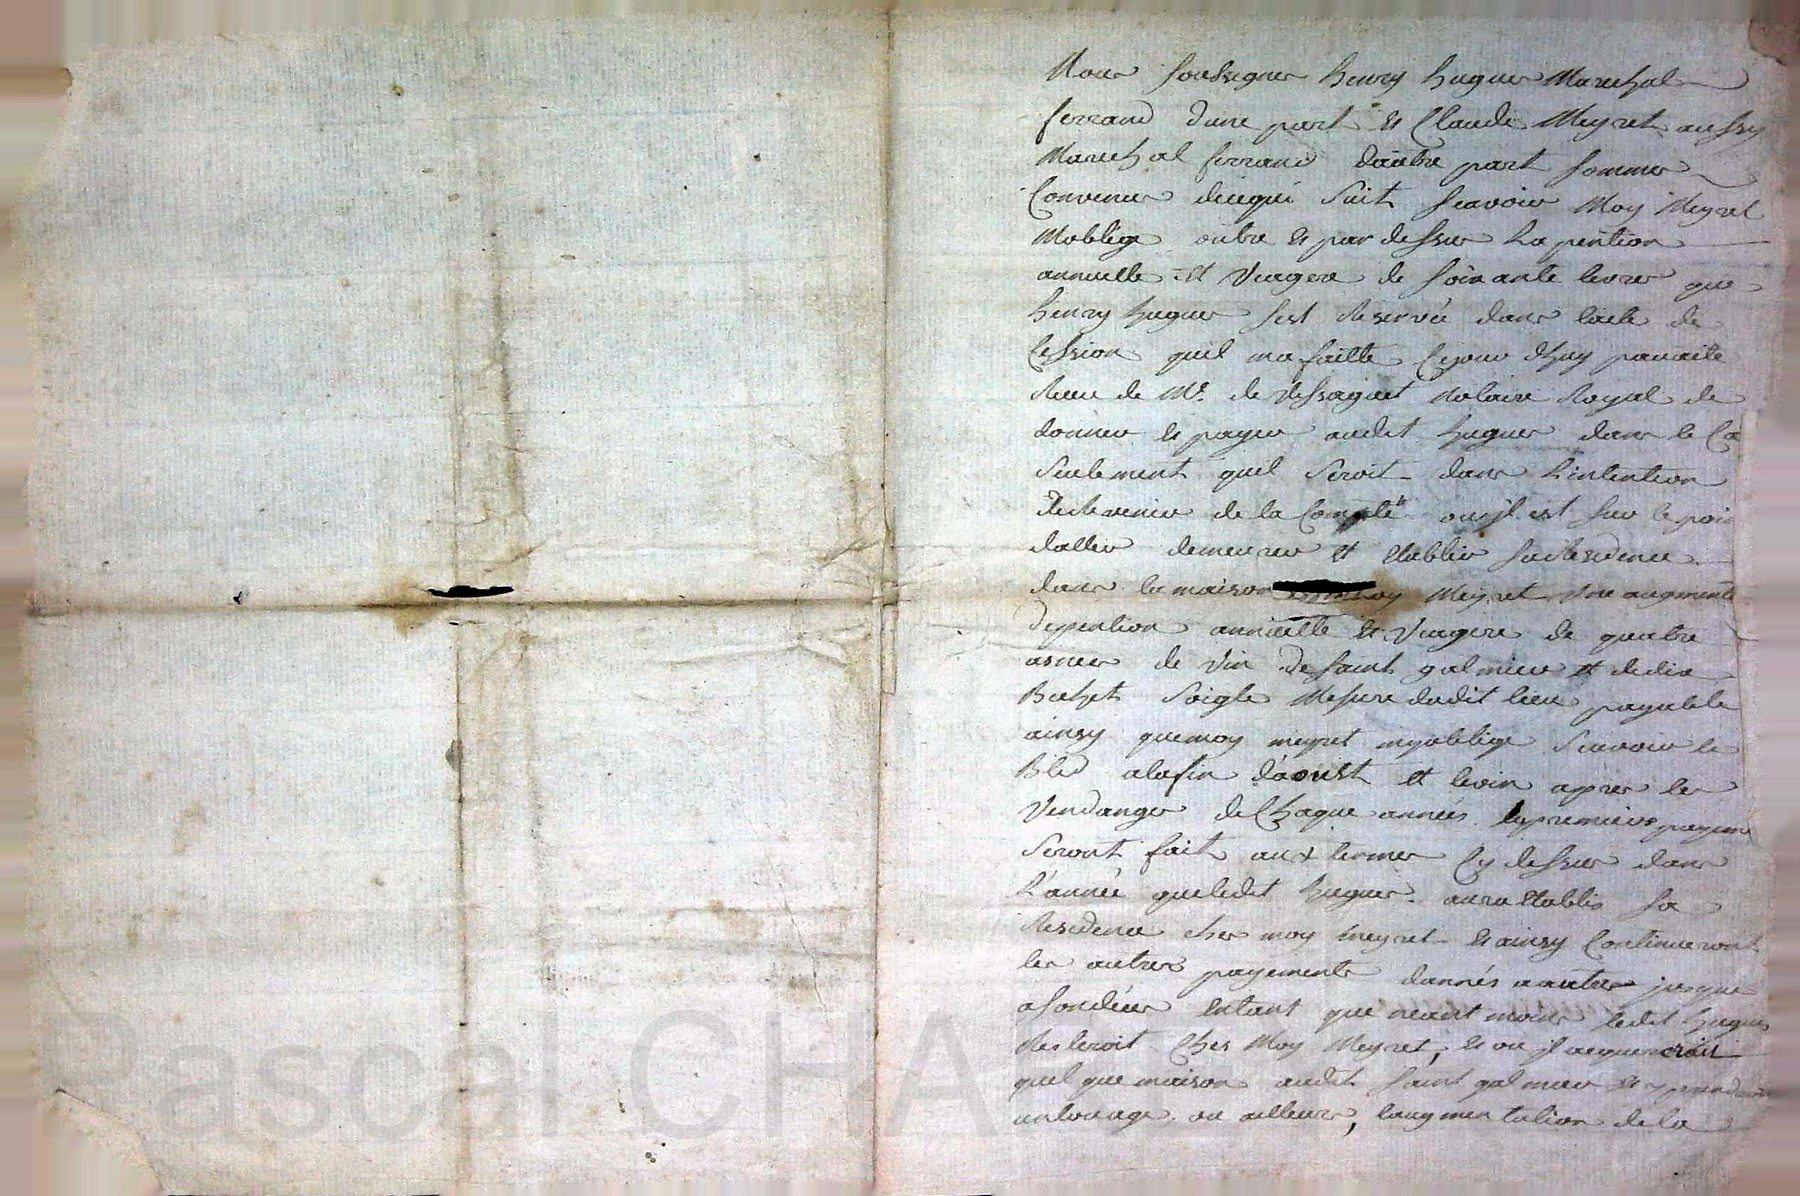 Nous Soussignes henry hugues Marechal
ferrand dune part et Claude Meyret aussy
Marechal ferrand dautre part Sommes
Convenus dicequi Suit Scavoir Moy Meyret
Moblige outre et par dessus La pention
annuelle et Viagere de Soixante livres que
henry hugues Sest Reservée dans lacte de
Cession quil ma faitte Cejour dhuy parvante
Receu de Me. de Vessaguet Notaire Royal de
donner et payer audit hugues dans le Ca
Seulement quil Seroit dans Lintention
de la ou il est Sur le poin
daller demeurer et Etablir Sa Residence
dans la maison Moy Meyret Une augment
depention annuelle et Viagere de quatre
asnees de Vin de Saint galmier et de dix
Bichet Soigle Mesure dudit lieu payable
ainsy que moy meyret myobblige Scavoir le
Bled alafin daoust et levin apres les
Vendanges de Chaque années les premiers payem
Seront fait aux termes Cy dessus dans
L'année queledit hugues aura Etablis Sa
Residence ches moy meyret et ainsy Continueront
les autres payements dannés a autres jusques
a Sondéces Entant que neant moins ledit hugues
Resteroit Ches Moy Meyret, et ou il acquereroit
quel que maison audit Saint galmier et
enlouage ou ailleurs, laugmentation de la
Pascal CHA